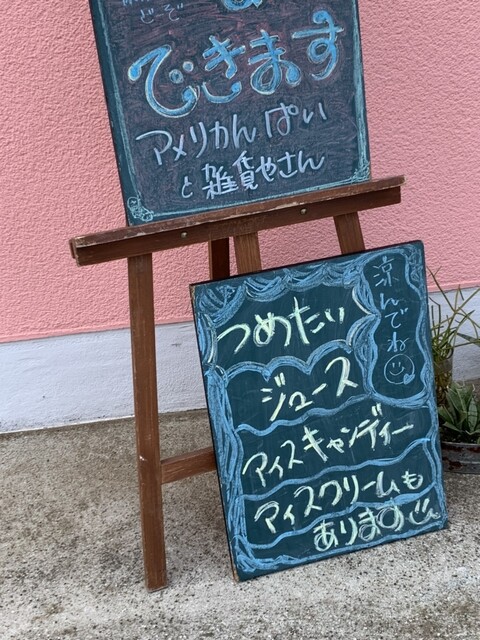 できます
アメリカんぱい
と雑貨やさん
涼んでね
つめたい
ジュース
アイスキャンディー
アイスクリームも
あります